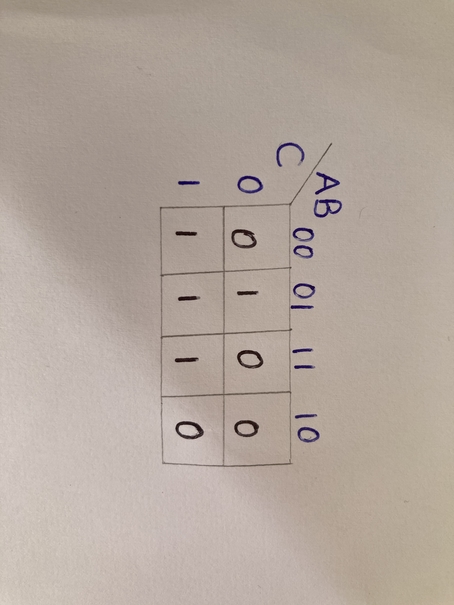 AB
C 00 01 11 10
0 0 1 0 0
1 1 1 1 0